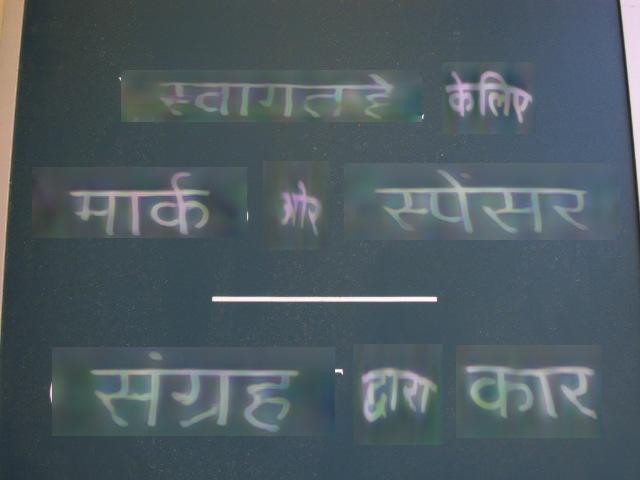 स्वागत हे के लिए
मार्क और स्पेंसर
संग्रह द्वारा कार